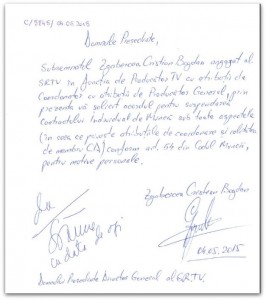 C/5845/04.03.2015
Domnule Președinte,
Subsemnatul Zgabercea Cristian Bogdan angajat al
SRTV în funcția de Producător TV cu atribuții de
Coordonator cu atribuții de Producător General, prin
prezenta vă solicit acordul pentru suspendarea
Contractului Individual de Muncă sub toate aspectele
(în ceea ce privește atribuțiile de coordonare și calitatea
de membru CA) conform art. 54 din Codul Muncii,
pentru motive personale.
Zgabercea Cristian Bogdan
cu data de azi
04.03.2015
Domnului Președinte Director General al SRTV.